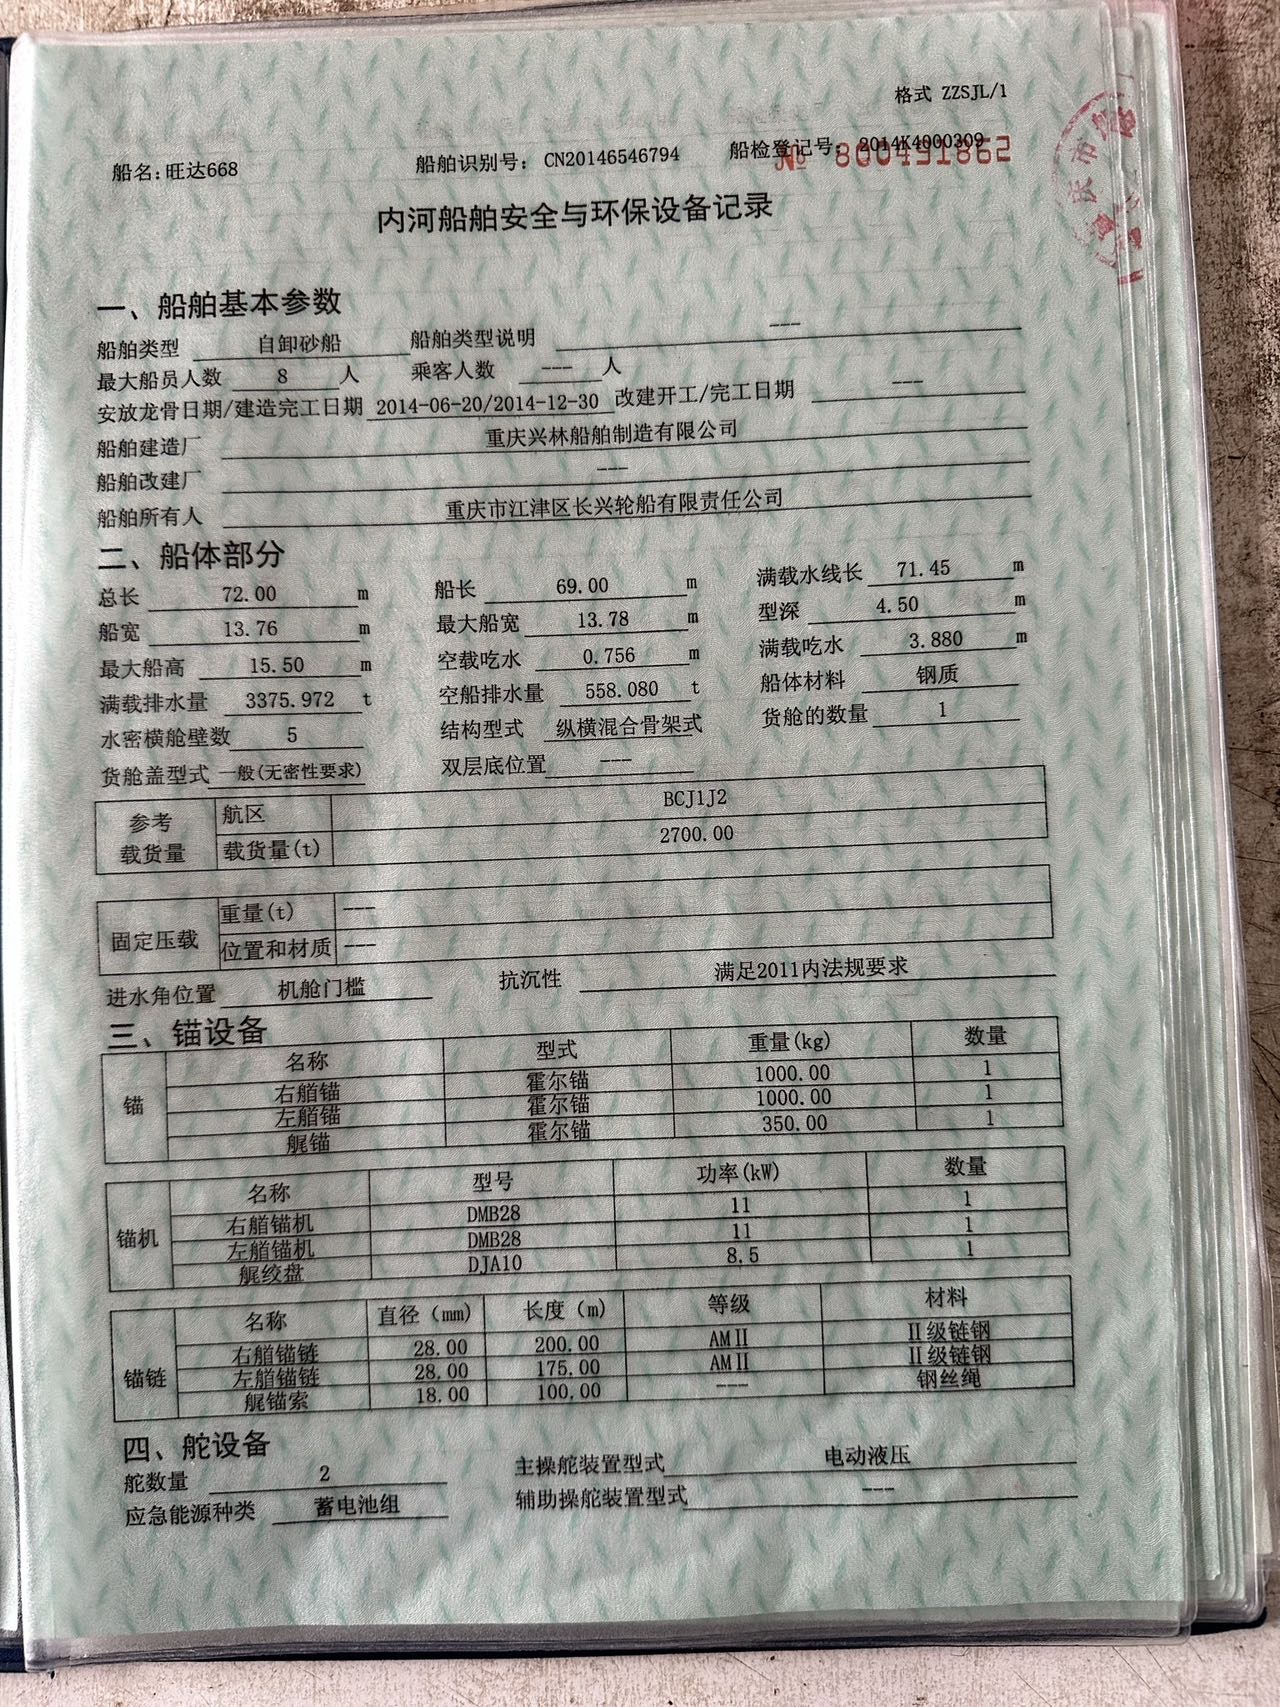 格式 ZZSJL/1
船名:旺达668 船舶识别号: CN20146546794 船检登记号: 2014K4000309
№ 800491862
内河船舶安全与环保设备记录
一、船舶基本参数
船舶类型 自卸砂船 船舶类型说明 ---
最大船员人数 8 人 乘客人数 --- 人
安放龙骨日期/建造完工日期 2014-06-20/2014-12-30 改建开工/完工日期 ---
船舶建造厂 重庆兴林船舶制造有限公司
船舶改建厂 ---
船舶所有人 重庆市江津区长兴轮船有限责任公司
二、船体部分
总长 72.00 m 船长 69.00 m 满载水线长 71.45 m
船宽 13.76 m 最大船宽 13.78 m 型深 4.50 m
最大船高 15.50 m 空载吃水 0.756 m 满载吃水 3.880 m
满载排水量 3375.972 t 空船排水量 558.080 t 船体材料 钢质
水密横舱壁数 5 结构型式 纵横混合骨架式 货舱的数量 1
货舱盖型式 一般(无密性要求) 双层底位置 ---
参考载货量 航区 BCJ1J2
载货量(t) 2700.00
固定压载 重量(t) ---
位置和材质 ---
进水角位置 机舱门槛 抗沉性 满足2011内法规要求
三、锚设备
锚 名称 型式 重量(kg) 数量
右艏锚 霍尔锚 1000.00 1
左艏锚 霍尔锚 1000.00 1
艉锚 霍尔锚 350.00 1
锚机 名称 型号 功率(kW) 数量
右艏锚机 DMB28 11 1
左艏锚机 DMB28 11 1
艉绞盘 DJA10 8.5 1
锚链 名称 直径 (mm) 长度 (m) 等级 材料
右艏锚链 28.00 200.00 AMⅡ Ⅱ级链钢
左艏锚链 28.00 175.00 AMⅡ Ⅱ级链钢
艉锚索 18.00 100.00 --- 钢丝绳
四、舵设备
舵数量 2 主操舵装置型式 电动液压
应急能源种类 蓄电池组 辅助操舵装置型式 ---